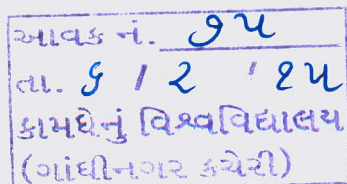 આવક નં. ૭૫
તા. ૬ / ૨ / ૧૫
કામધેનું વિશ્વવિદ્યાલય
(ગાંધીનગર કચેરી)